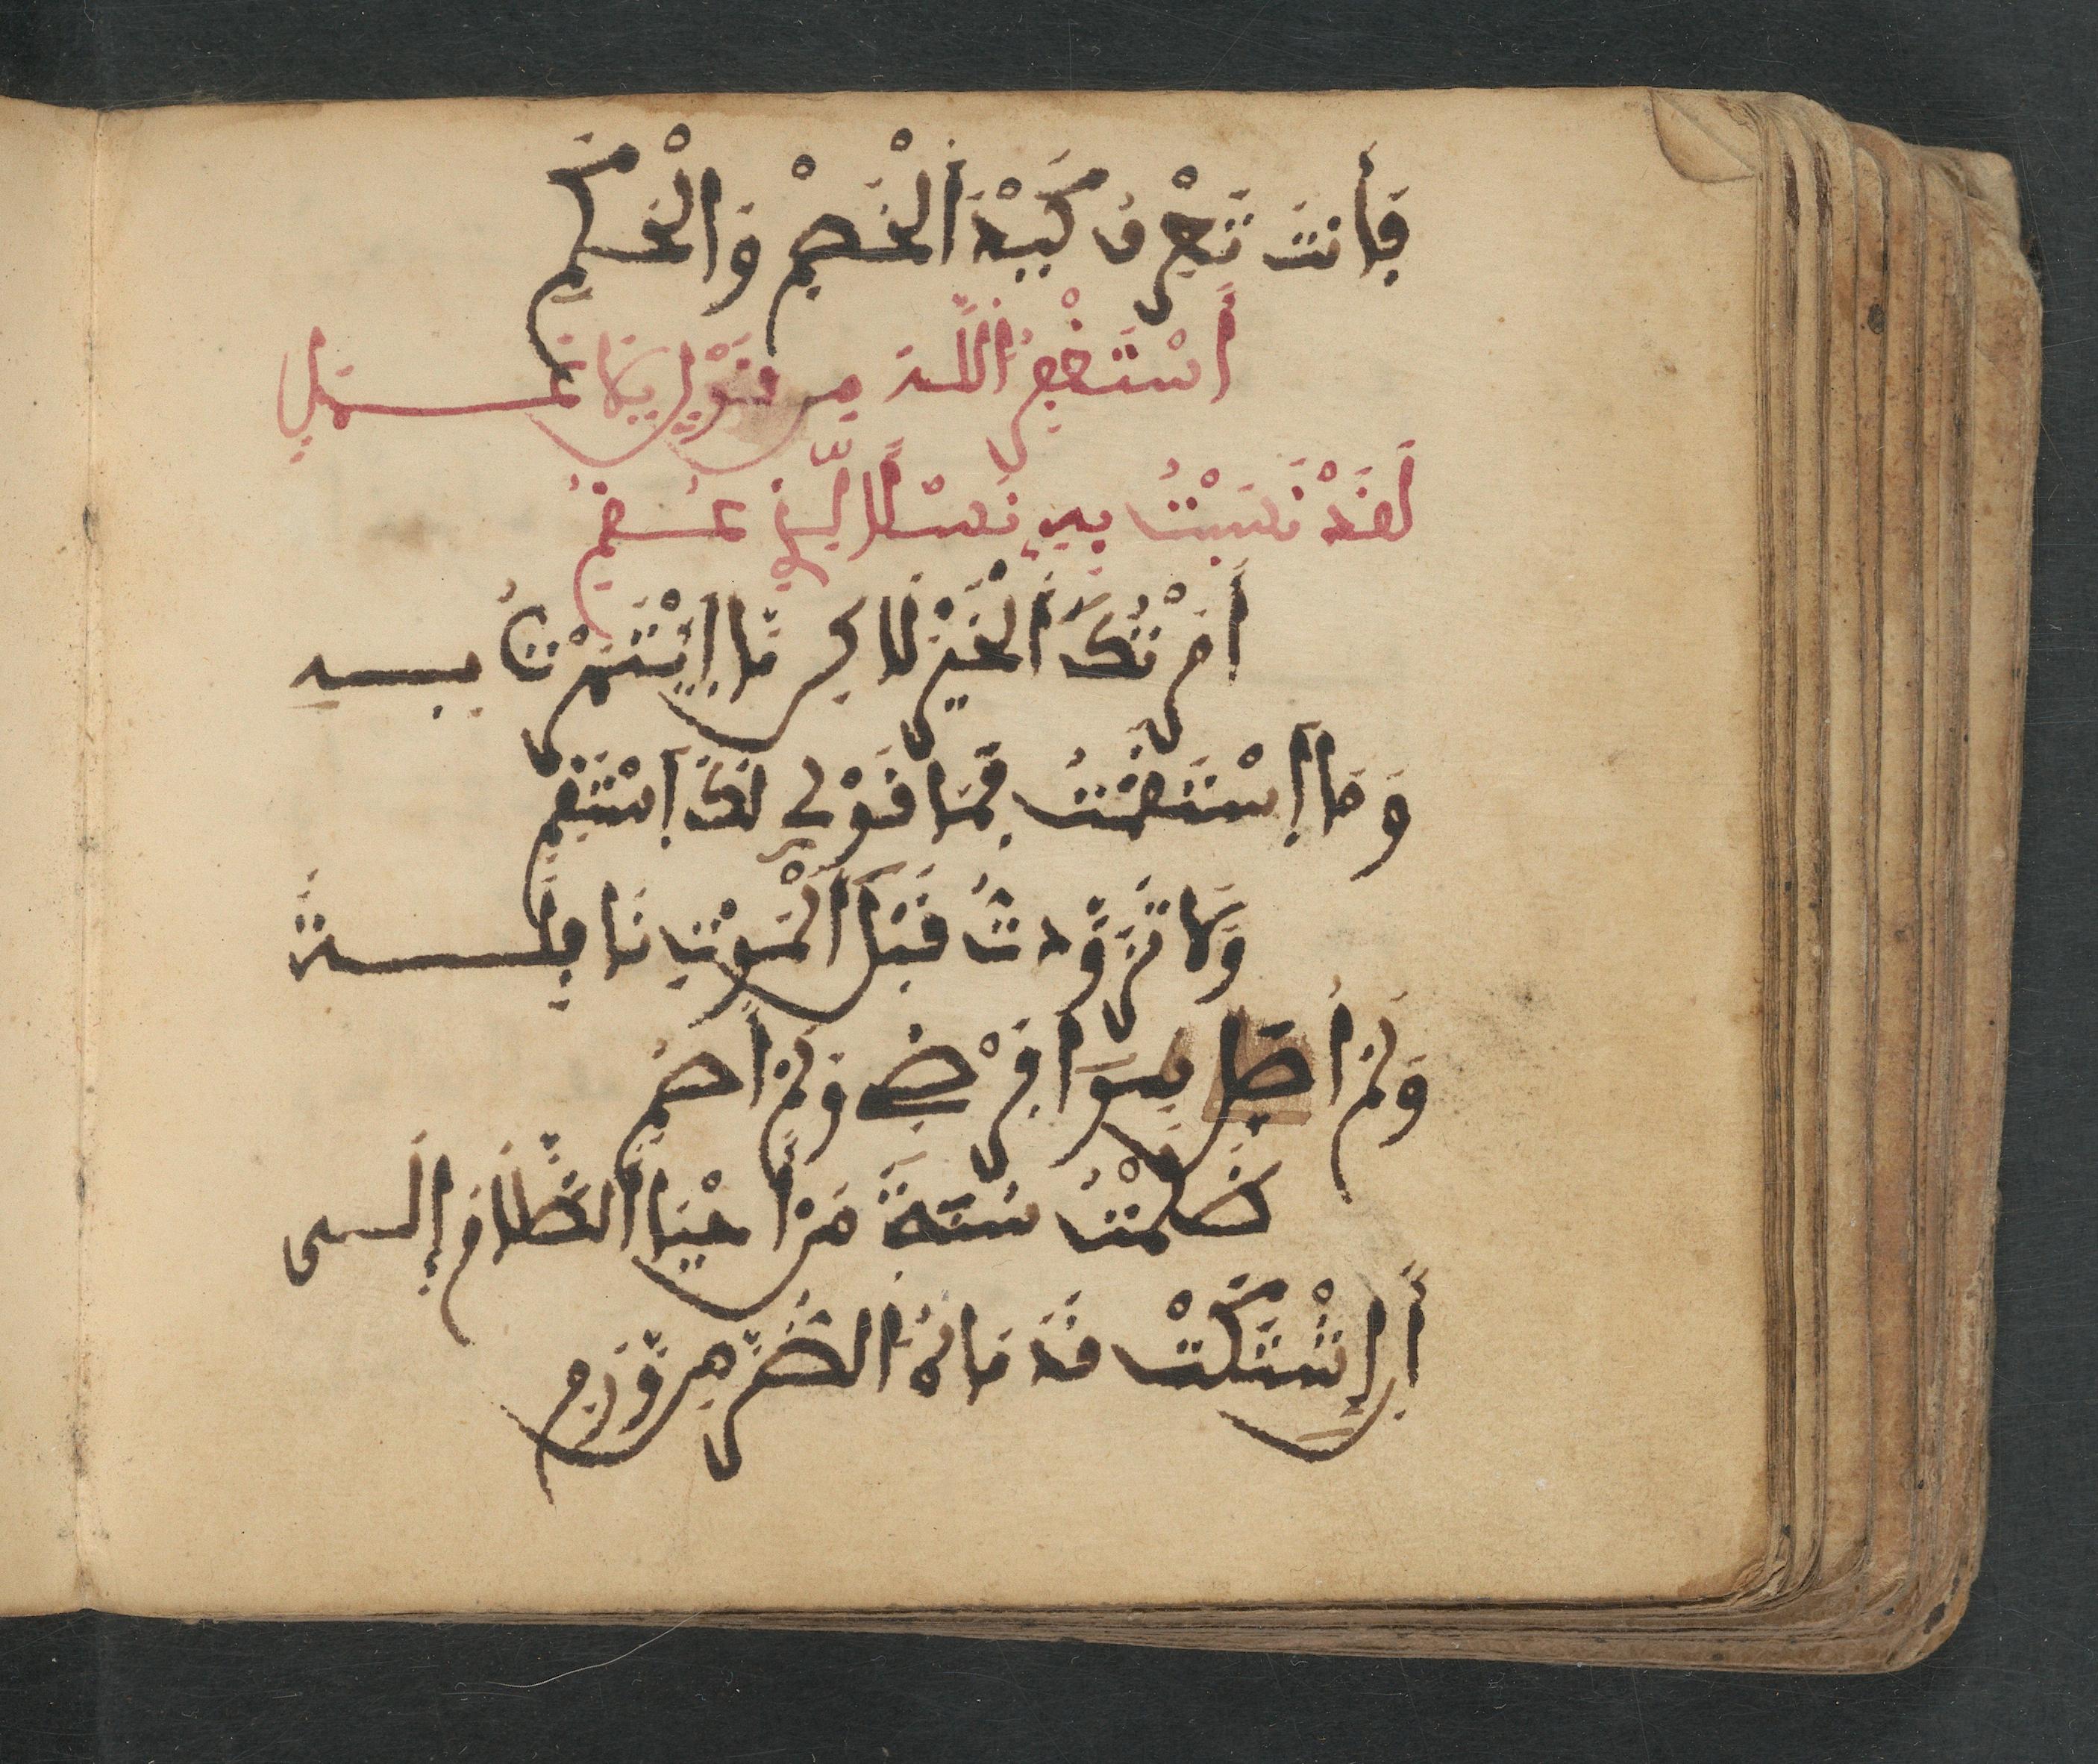 فَأَنتَ تَعْرِفُ كَيْدَ اَلْخَصْمِ وَالْحَكَمِ
أَسْتَغْفِرُ اُللَّهَ مِن قَوْلٍ بِلَا عَمَلٍ
لَقَدْ نَسَبْتُ بِهِ نَسْلًا لِّذِي عُقُمِ
أَمَرْتُكَ اَلْخَيْرَ لَاكِن مَّا اَئْتَمَرْتُ بِهِ
وَمَا اَسْتَقَمْتُ فَمَا قَوْلِي لَكَ اَسْتَقِمِ
وَلَا تَزَوَّدتُ قَبْلَ اَلْمَوْتِ نَافِلَةً
وَلَمْ أُصَلِّ سِوَا فَرْضٍ وَلَمْ أَصُمِ
ظَلَمْتُ سُنَّةَ مَنْ أَحْيَا اَلظَّلَامَ إِلَى
أَنِ اِشْتَكَتْ قَدَمَاهُ اُلضُّرَّ مِن وَّرَمِ